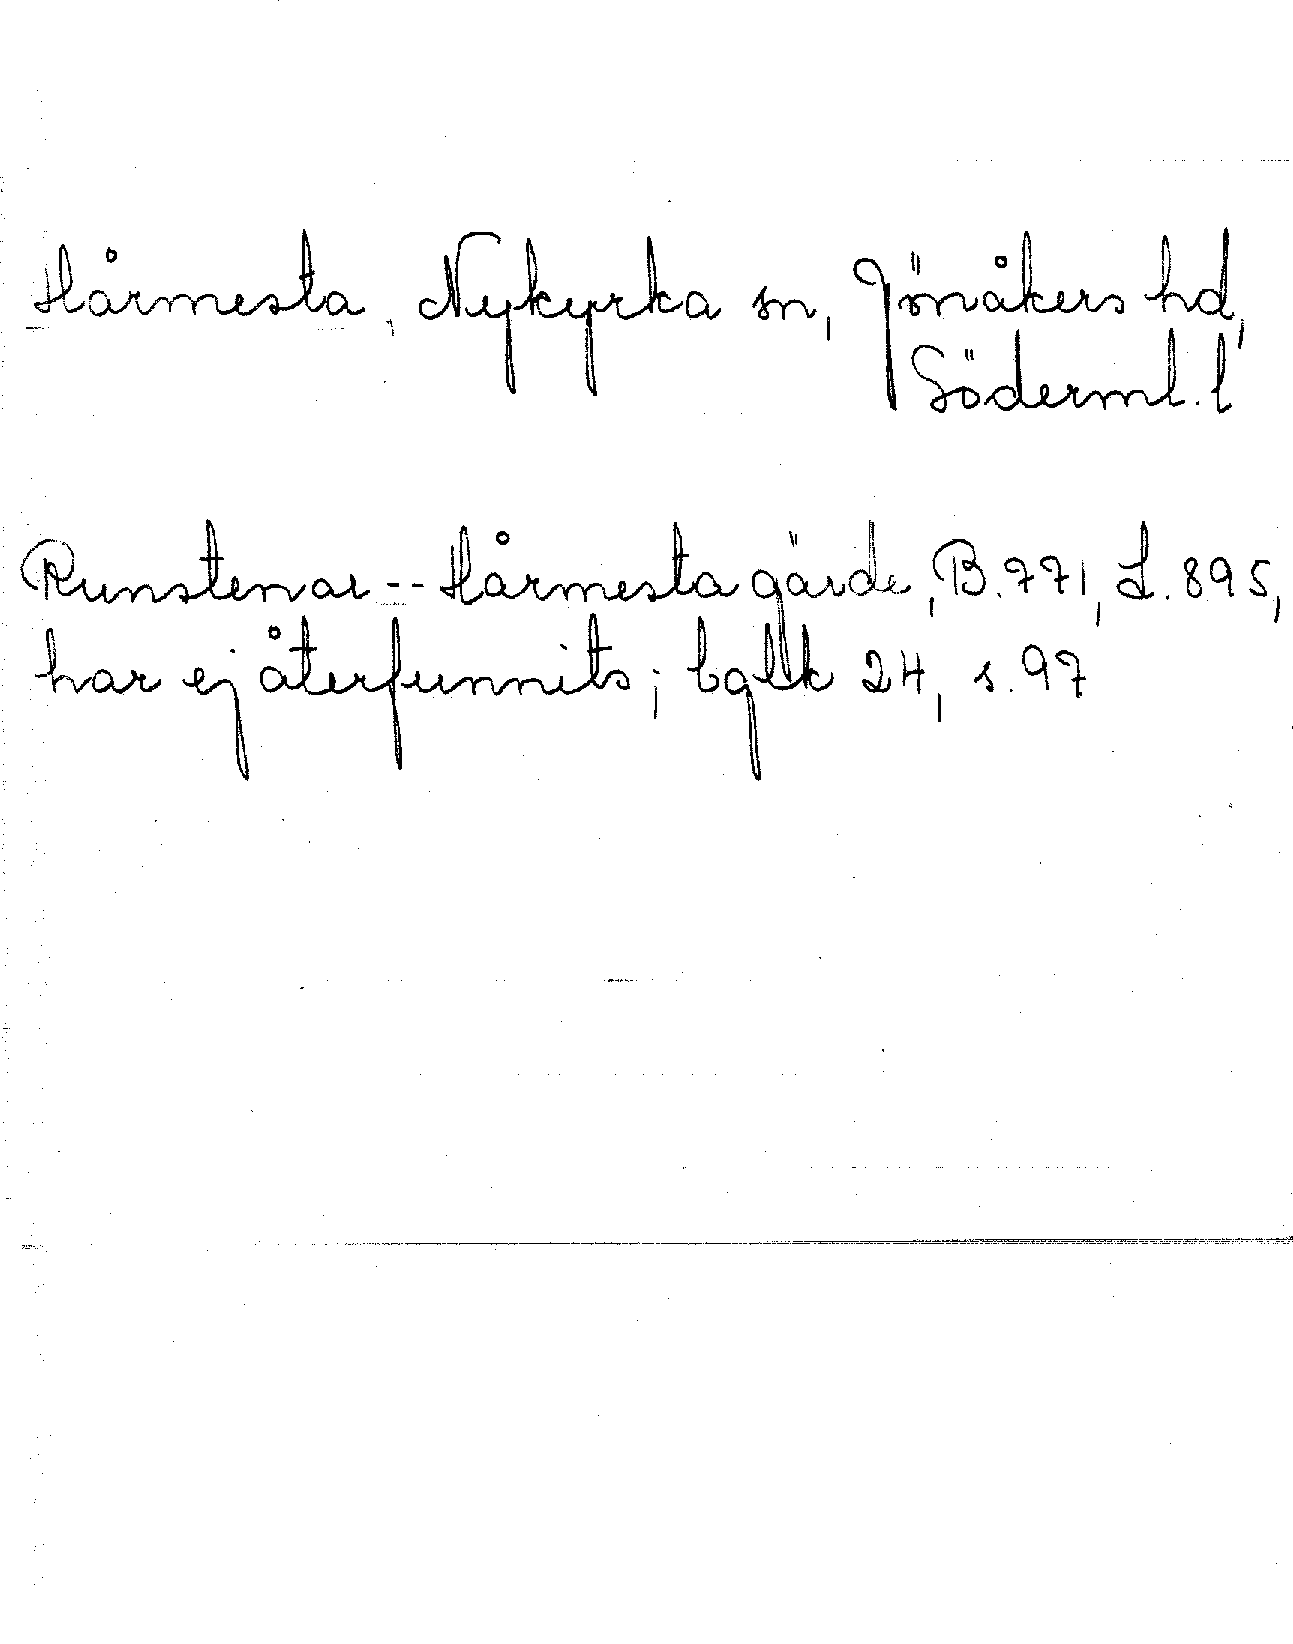 Hårmesta, Nykyrka sn, Jönåkers hd,
Söderml. l
Runstenar -- Hårmesta gärde, B. 771, L. 895,
har ej återfunnits; bglk 24, s. 97